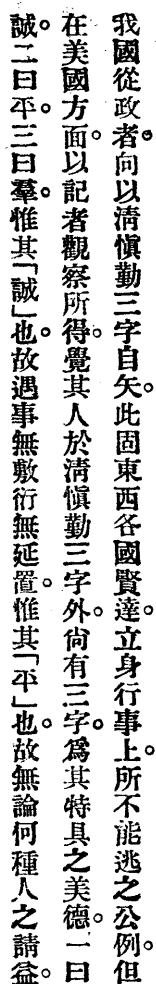 我國從政者。向以淸愼勤三字自矢。此固東西各國賢達。立身行事上。所不能逃之公例。但
在美國方面。以記者觀察所得。覺其人於淸愼勤三字外。尙有三字。爲其特具之美德。一曰
誠。二曰平。三曰羣。惟其「誠」也。故遇事無敷衍無延置。惟其「平」也。故無論何種人之請益。